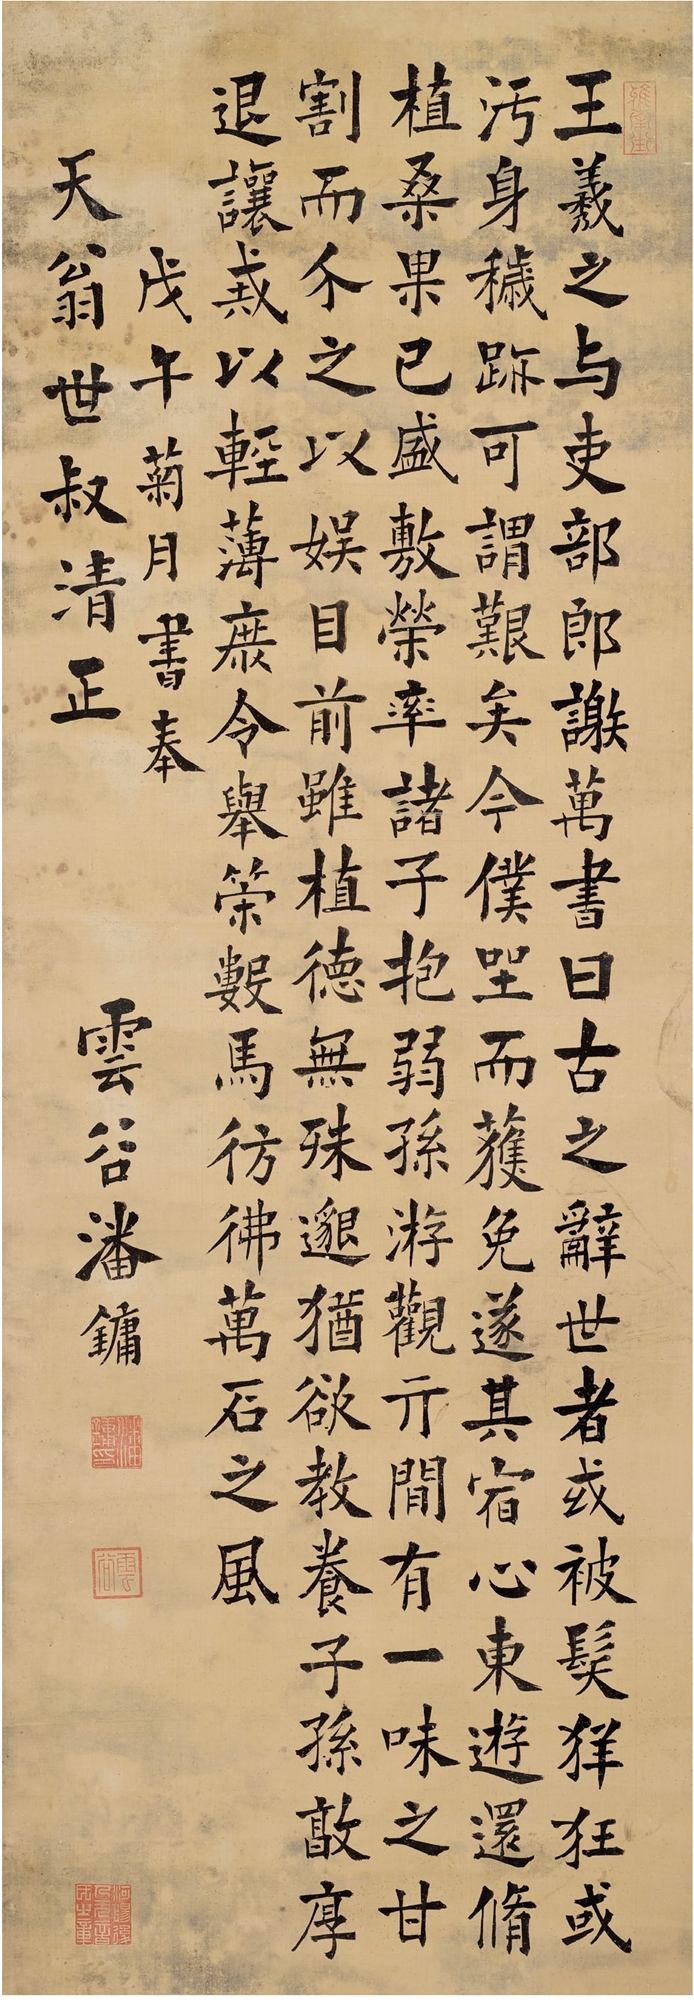 王羲之与吏部郎謝萬書曰古之辭世者或被髮猖狂或
汚身穢跡可謂艱矣今僕坐而獲免遂其宿心東遊還脩
植桑果已盛敷榮率諸子抱弱孫游觀亓間有一味之甘
割而分之以娱目前雖植德無殊邈猶欲教養子孫敦厚
退讓或以輕薄庶令舉策數馬彷彿萬石之風
戊午菊月書奉
天翁世叔清正
雲谷潘鏞
潘鏞印
雲谷